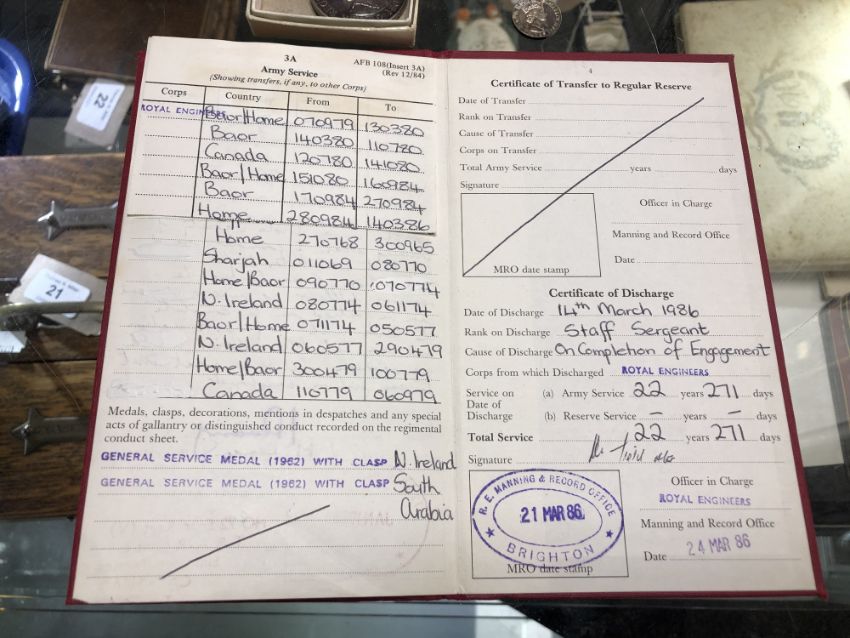 3A
AFB 108(Insert 3A)
(Rev 12/84)
Army Service
(Showing transfers, if any, to other Corps)
Corps Country From To
ROYAL ENGINEERS Baor/Home 070979 130380
Baor 140380 110780
Canada 120780 141080
Baor/Home 151080 160984
Baor 170984 270984
Home 280984 140386
Home 270768 300965
Sharjah 011069 080770
Home/Baor 090770 070774
N. Ireland 080774 061174
Baor/Home 071174 050577
N. Ireland 060577 290479
Home/Baor 300479 100779
Canada 110779 060979
Medals, clasps, decorations, mentions in despatches and any special
acts of gallantry or distinguished conduct recorded on the regimental
conduct sheet.
GENERAL SERVICE MEDAL (1962) WITH CLASP N. Ireland
GENERAL SERVICE MEDAL (1962) WITH CLASP South
Arabia
4
Certificate of Transfer to Regular Reserve
Date of Transfer
Rank on Transfer
Cause of Transfer
Corps on Transfer
Total Army Service years days
Signature
Officer in Charge
Manning and Record Office
Date
MRO date stamp
Certificate of Discharge
Date of Discharge 14th March 1986
Rank on Discharge Staff Sergeant
Cause of Discharge On Completion of Engagement
Corps from which Discharged ROYAL ENGINEERS
Service on (a) Army Service 22 years 271 days
Date of
Discharge (b) Reserve Service – years – days
Total Service 22 years 271 days
Signature
R.E. MANNING & RECORD OFFICE
21 MAR 86
BRIGHTON
MRO date stamp
Officer in Charge
ROYAL ENGINEERS
Manning and Record Office
Date 24 MAR 86
22
21